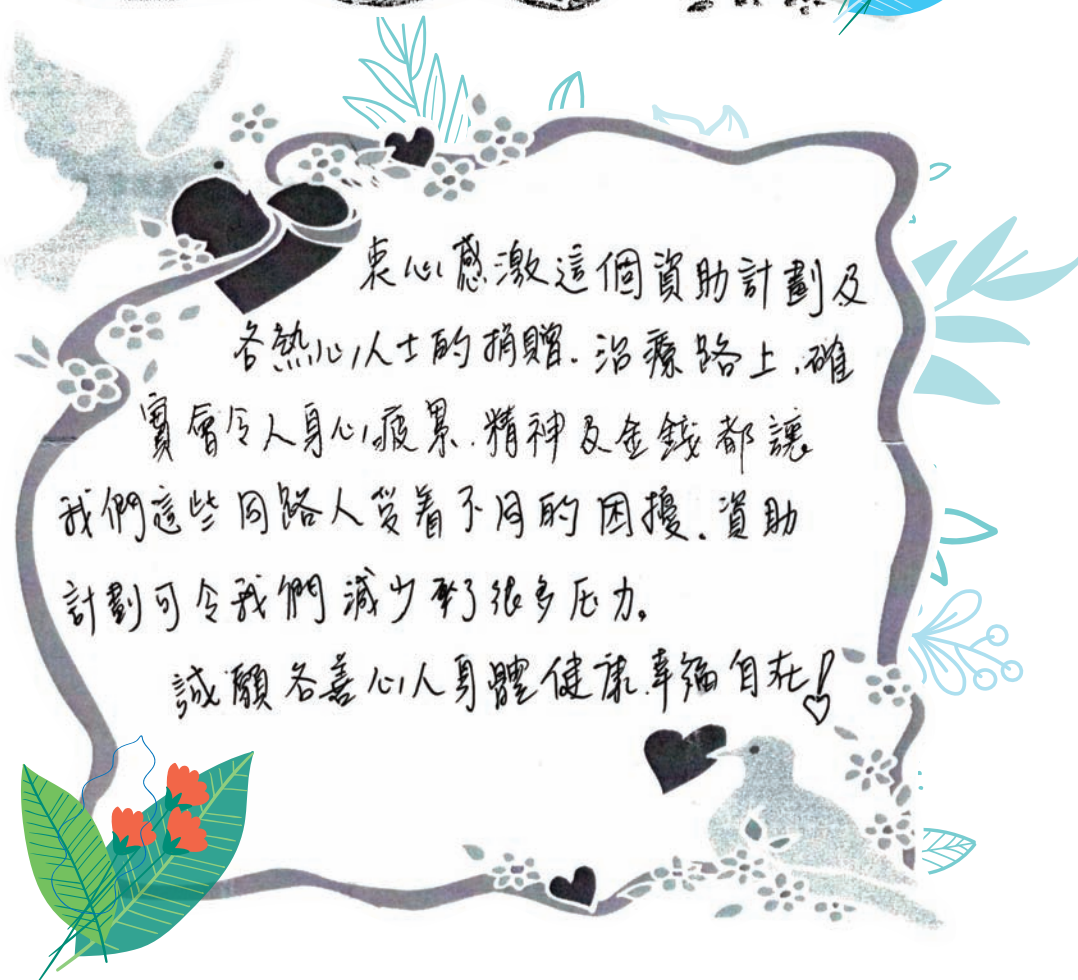 衷心感激這個資助計劃及
各熱心人士的捐贈.治療路上,確
實會令人身心疲累.精神及金錢都讓
我們這些同路人受着不同的困擾.資助
計劃可令我們減少了很多压力。
誠願各善心人身體健康.幸福自在!